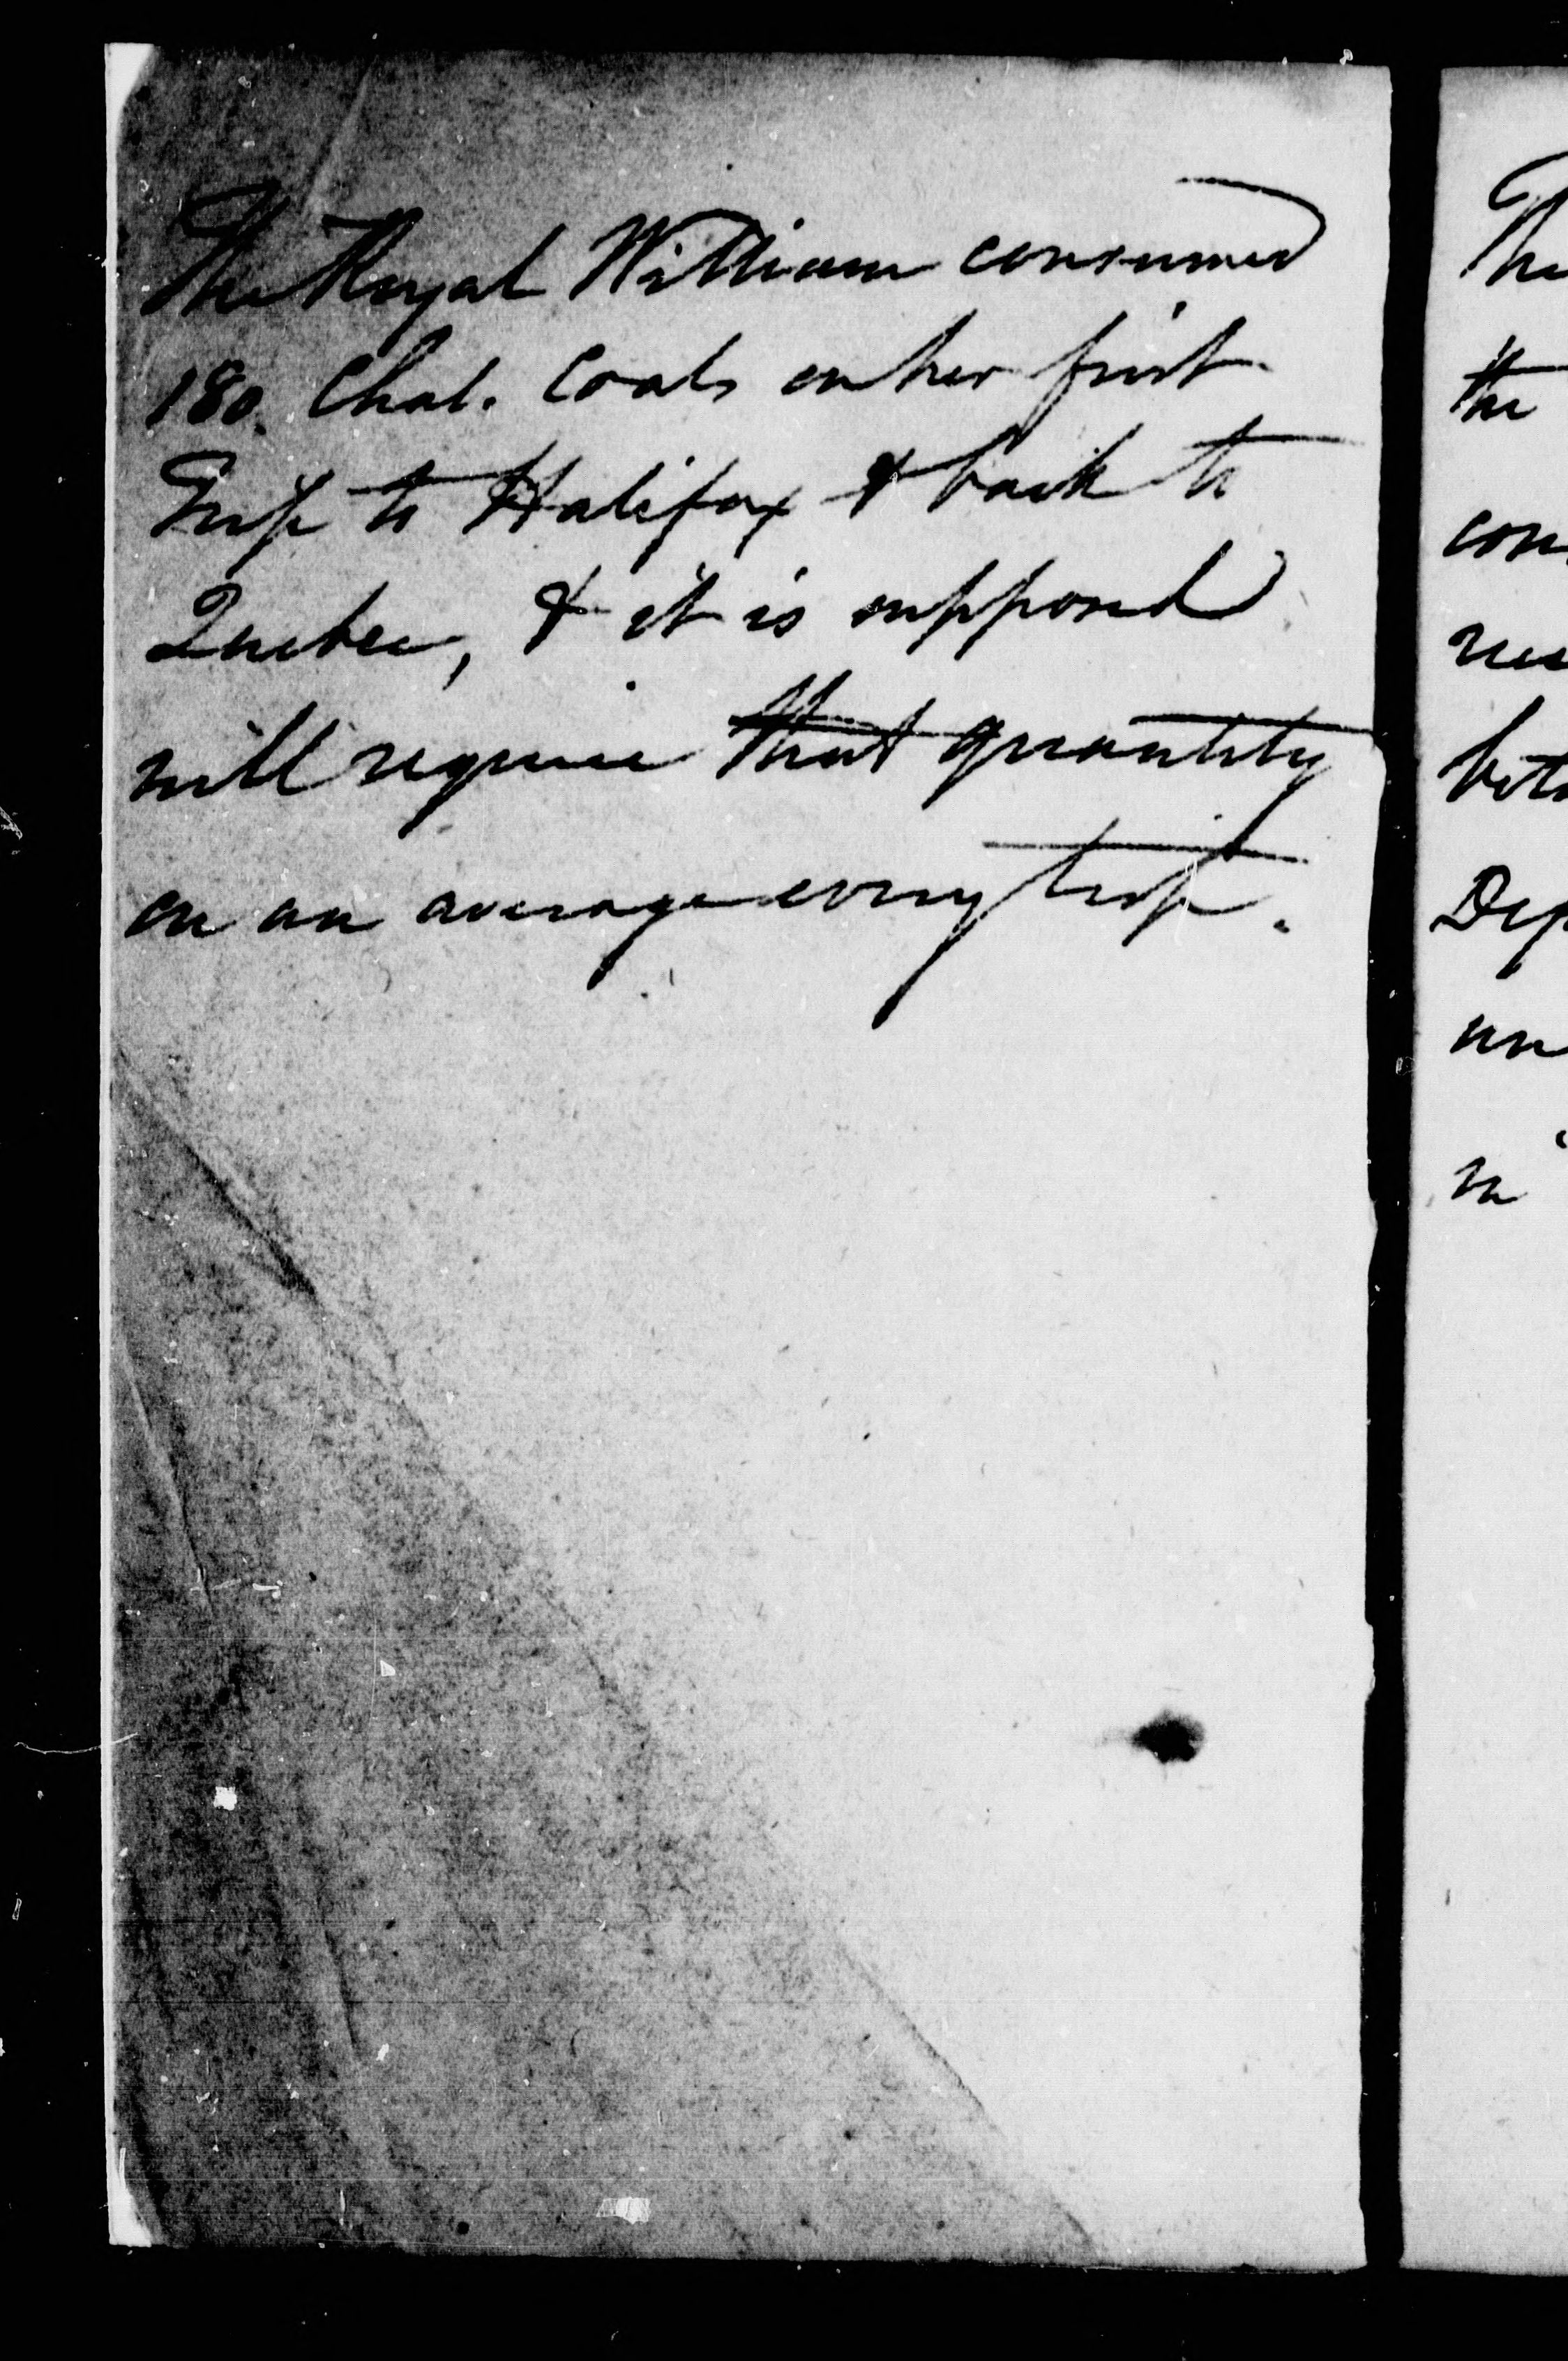 The Royal William consumed
180. Chal. Coals on her first
Trip to Halifax & back to
Quebec, & it is supposed
will require that quantity
on an average every trip.
The
the
con
res
beta
Dep
un
in